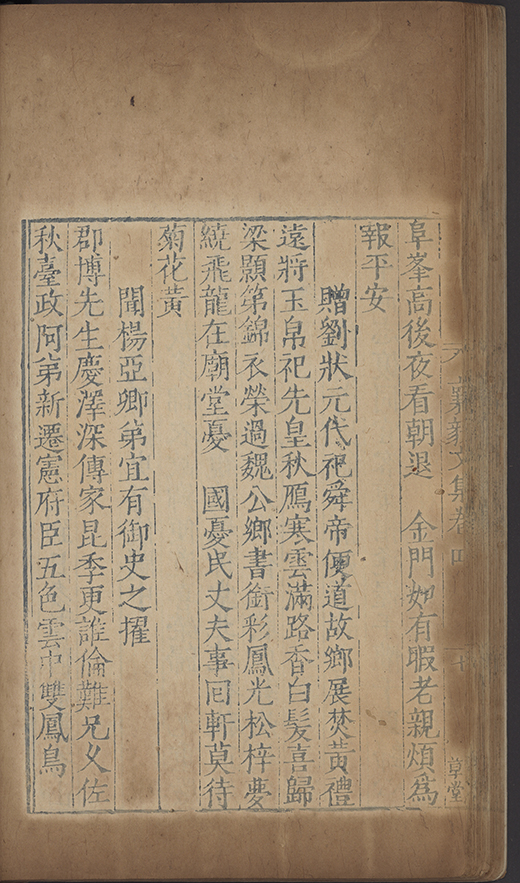 阜峯高後夜看朝退　金門如有暇老親煩爲
報平安
贈劉狀元代祀舜帝便道故鄉展焚黃禮
遠將玉帛祀先皇秋鴈寒雲滿路香白髮喜歸
梁顥第錦衣榮過魏公鄉書銜彩鳳光松梓夢
繞飛龍在廟堂憂　國憂民丈夫事囘軒莫待
菊花黃
聞楊亞卿弟宜有御史之擢
郡博先生慶澤深傳家昆季更誰倫難兄乂佐
秋臺政阿弟新遷憲府臣五色雲中雙鳳鳥
襄毅文集卷四
十
草堂